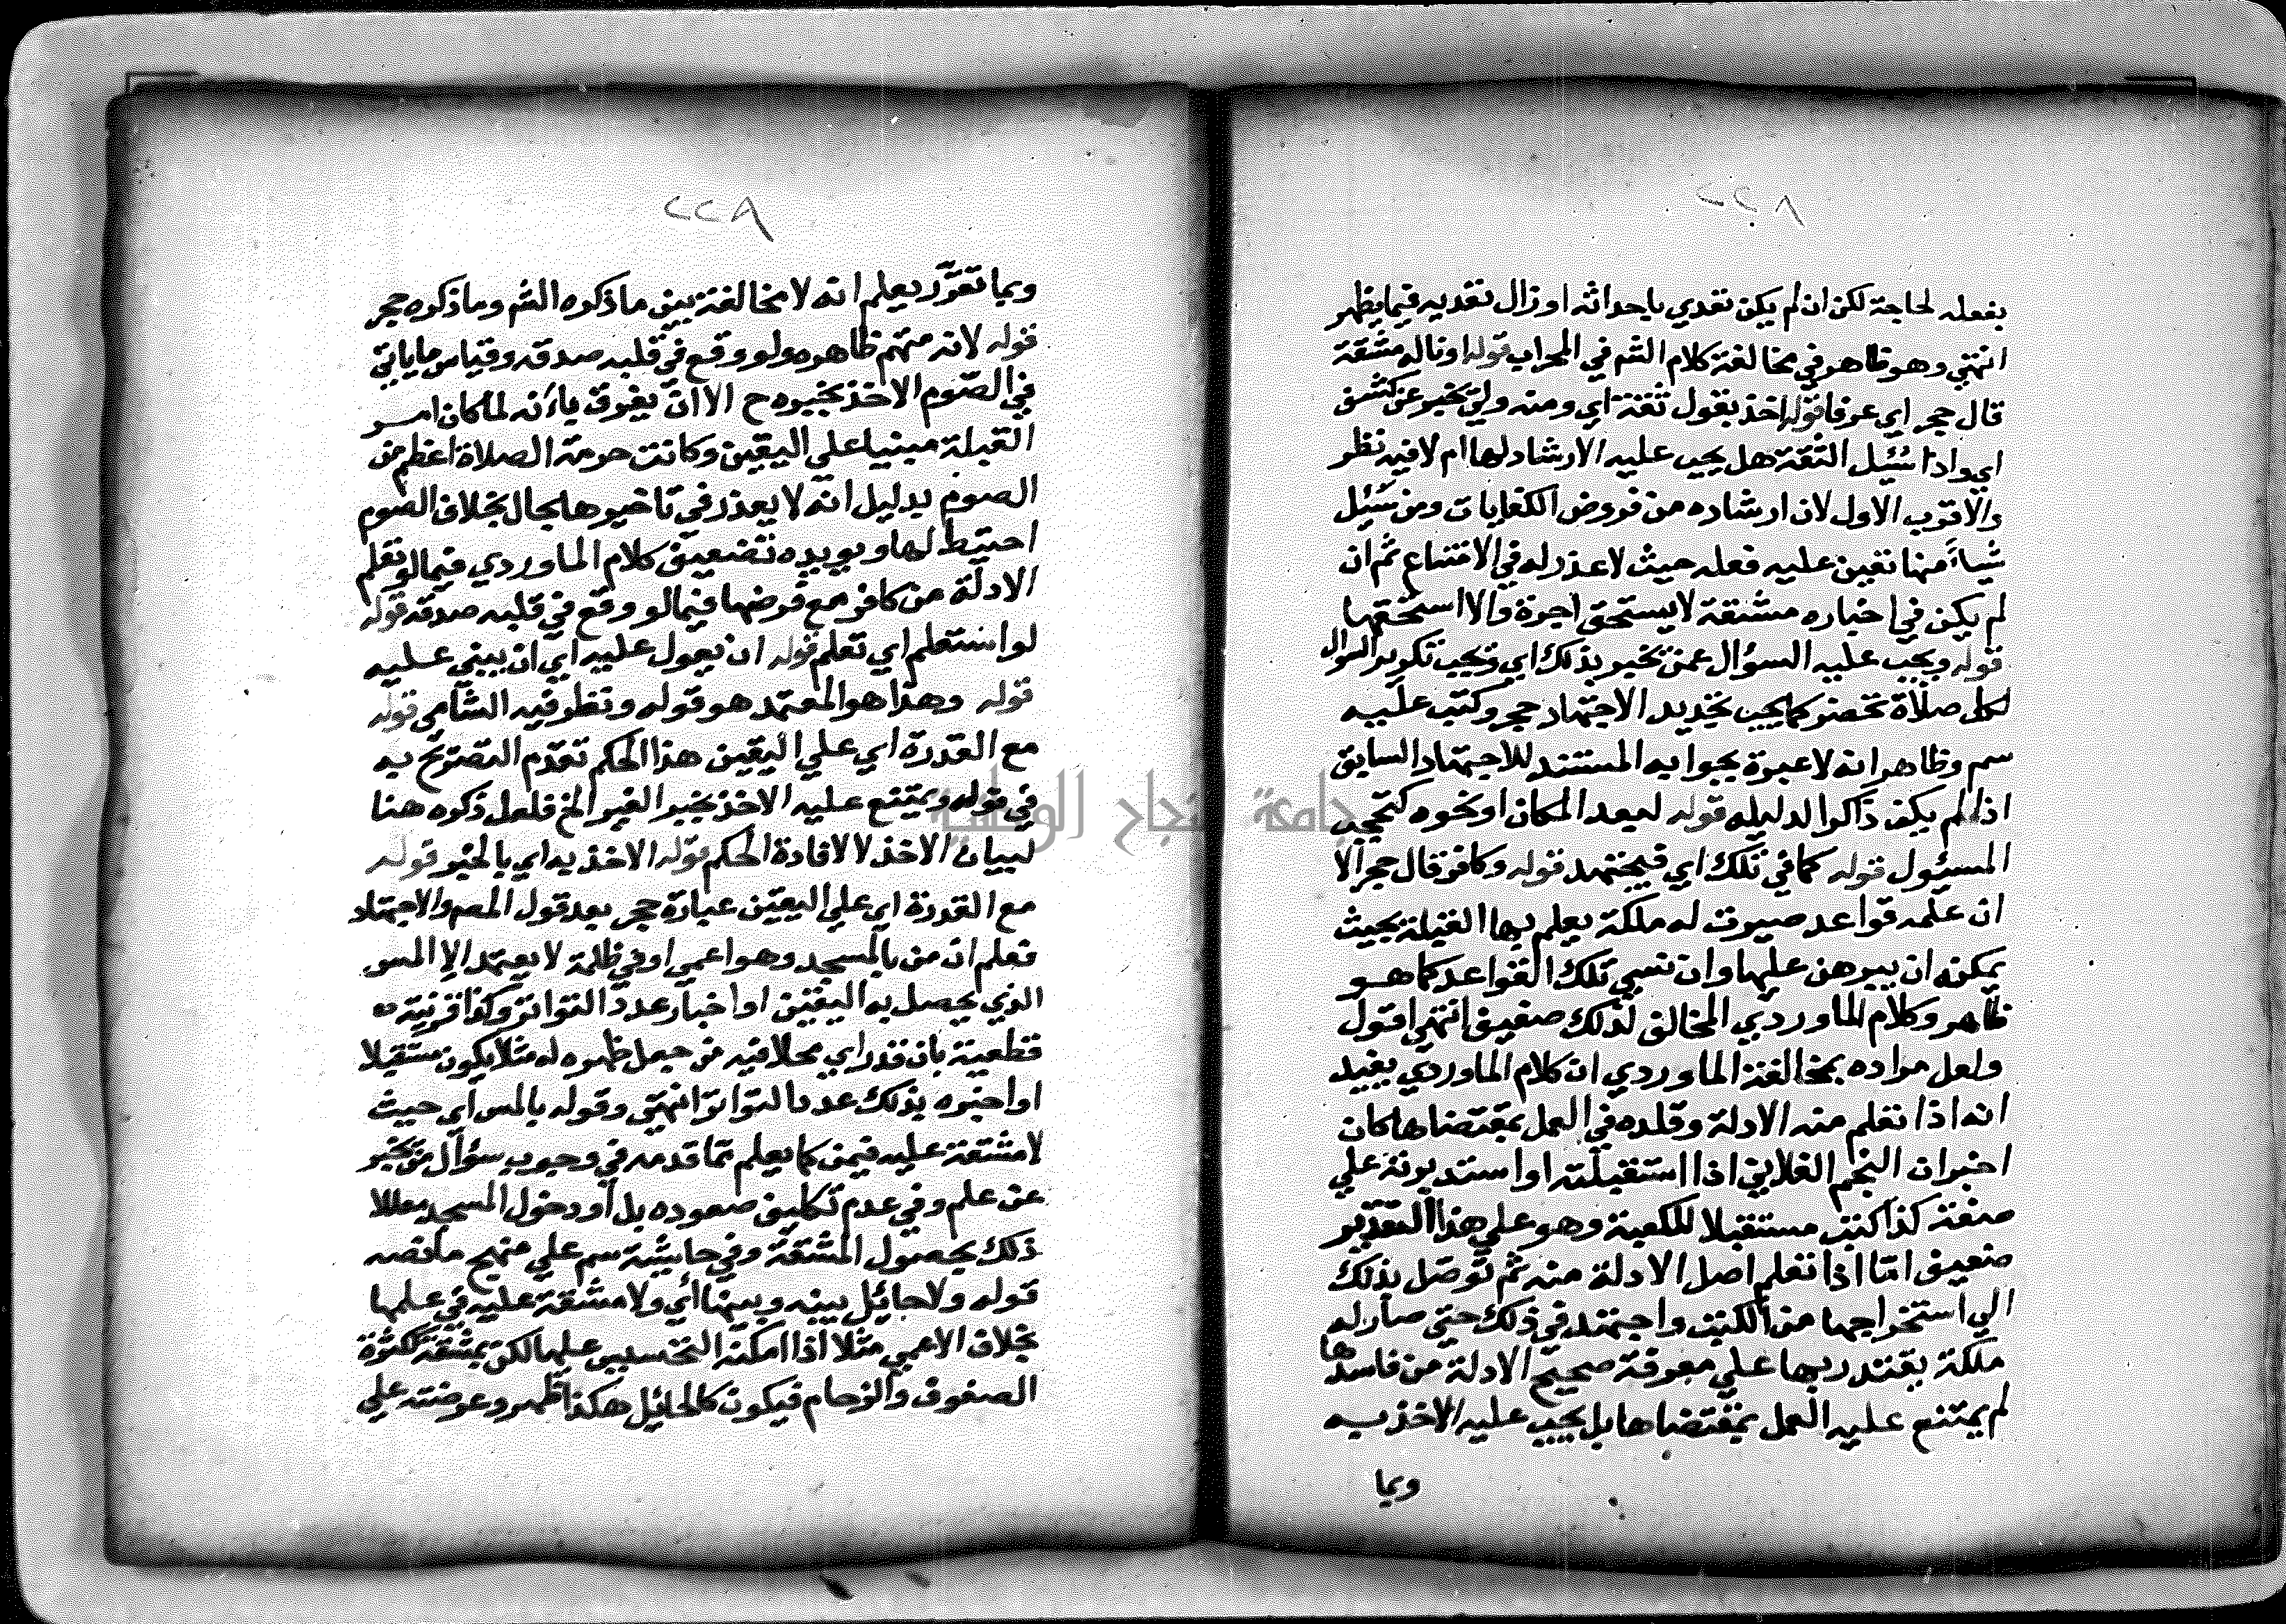 ٢٢٨
بفعله لحاجة لكن ان لم يكن تعدي باحداثه او زال تعديه فيما يظهر
انتهي وهو ظاهر في مخالفة كلام الشم في المحراب قوله او ناله مشقة
قال حجر اي عرفا قوله اخذ بقول ثقة اي ومنه ولي يخبر عن كشف
اي واذا سُئِل الثقة هل يجب عليه الارشاد لها ام لا فيه نظر
والاقرب الاول لان ارشاده من فروض الكفايات ومن سُئِل
شياً منها تعين عليه فعله حيث لا عذر له في الامتناع ثم ان
لم يكن في اخباره مشقة لا يستحق اجرة والا استحقها
قوله ويجب عليه السؤال عمن يخبر بذلك اي ويجب تكرير السوال
لكل صلاة تحضر كما يجب تجديد الاجتهاد حجر وكتب عليه
سم وظاهر انه لا عبرة بجوابه المستند للاجتهاد السابق
اذا لم يكن ذاكرا لدليله قوله لبعد المكان او نحوه كتحجب
المسئول قوله كما في تلك اي فيجتهد قوله وكافر قال حجر الا
ان علمه قواعد صيرت له ملكة يعلم بها القبلة بحيث
يمكنه ان يبرهن عليها وان نسي تلك القواعد كما هو
ظاهر وكلام الماوردي المخالف لذلك ضعيف انتهي اقول
ولعل مراده بمخالفة الماوردي ان كلام الماوردي يفيد
انه اذا تعلم منه الادلة وقلده في العمل بمقتضاها كان
اخبر ان النجم الفلاني اذا استقبلته او استدبرته علي
صفة كذا كنت مستقبلا للكعبة وهو علي هذا التقدير
ضعيف امّا اذا تعلم اصل الادلة منه ثم توصّل بذلك
الي استخراجها من الكتب واجتهد في ذلك حتي صار له
ملكة يقتدر بها علي معرفة صحيح الادلة من فاسدها
لم يمتنع عليه العمل بمقتضاها بل يجب عليه الاخذ به
وبما
٢٢٩
وبما تقرّر يعلم انه لا مخالفة بين ما ذكره الشم وما ذكره حجر
قوله لانه متهم ظاهره ولو وقع في قلبه صدقه وقياس ما ياتي
في الصوم الاخذ بخبره ح الا ان يفرق بأنه لما كان امر
القبلة مبنيا علي اليقين وكانت حرمة الصلاة اعظم من
الصوم بدليل انه لا يعذر في تاخيرها بحال بخلاف الصوم
احتيط لها ويويده تضعيف كلام الماوردي فيما لو تعلم
الادلة من كافر مع فرضها فيما لو وقع في قلبه صدقه قوله
لو استعلم اي تعلم قوله ان يعول عليه اي ان يبني عليه
قوله وهذا هو المعتمد هو قوله ونظر فيه الشامي قوله
مع القدرة اي علي اليقين هذا الحكم تقدم التصريح به
في قوله ويمتنع عليه الاخذ بخبر الغير الخ فلعل ذكره هنا
لبيان الاخذ لا لافادة الحكم قوله الاخذ به اي بالخبر قوله
مع القدرة اي علي اليقين عبارة حجر بعد قول المصم والاجتهاد
فعلم ان من بالمسجد وهو اعمي او في ظلمة لا يعتمد الا المس
الذي يحصل به اليقين او اخبار عدد التواتر وكذا قرينة
قطعية بان قدر اي محلا فيه من جعل ظهره له مثلا يكون مستقبلا
او اخبره بذلك عدد التواتر انتهي وقوله بالمس اي حيث
لا مشقة عليه فيمن كما يعلم مما قدمه في وجوب سؤال من يخبر
عن علم وفي عدم تكليف صعوده بل او دخول المسجد معللا
ذلك بحصول المشقة وفي حاشية سم علي منهج ما نصه
قوله ولا حائِل بينه وبينها أي ولا مشقة عليه في علمها
بخلاف الاعمي مثلا اذا امكنه التحسس عليها لكن بمشقة لكثرة
الصفوف والزحام فيكون كالحائِل هكذا ظهر وعرضته علي
جامعة النجاح الوطنية